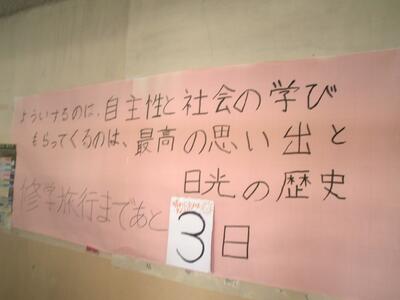 よういするのに、自主性と社会の学び
もらってくるのは、最高の思い出と
日光の歴史
修学旅行まであと
3日